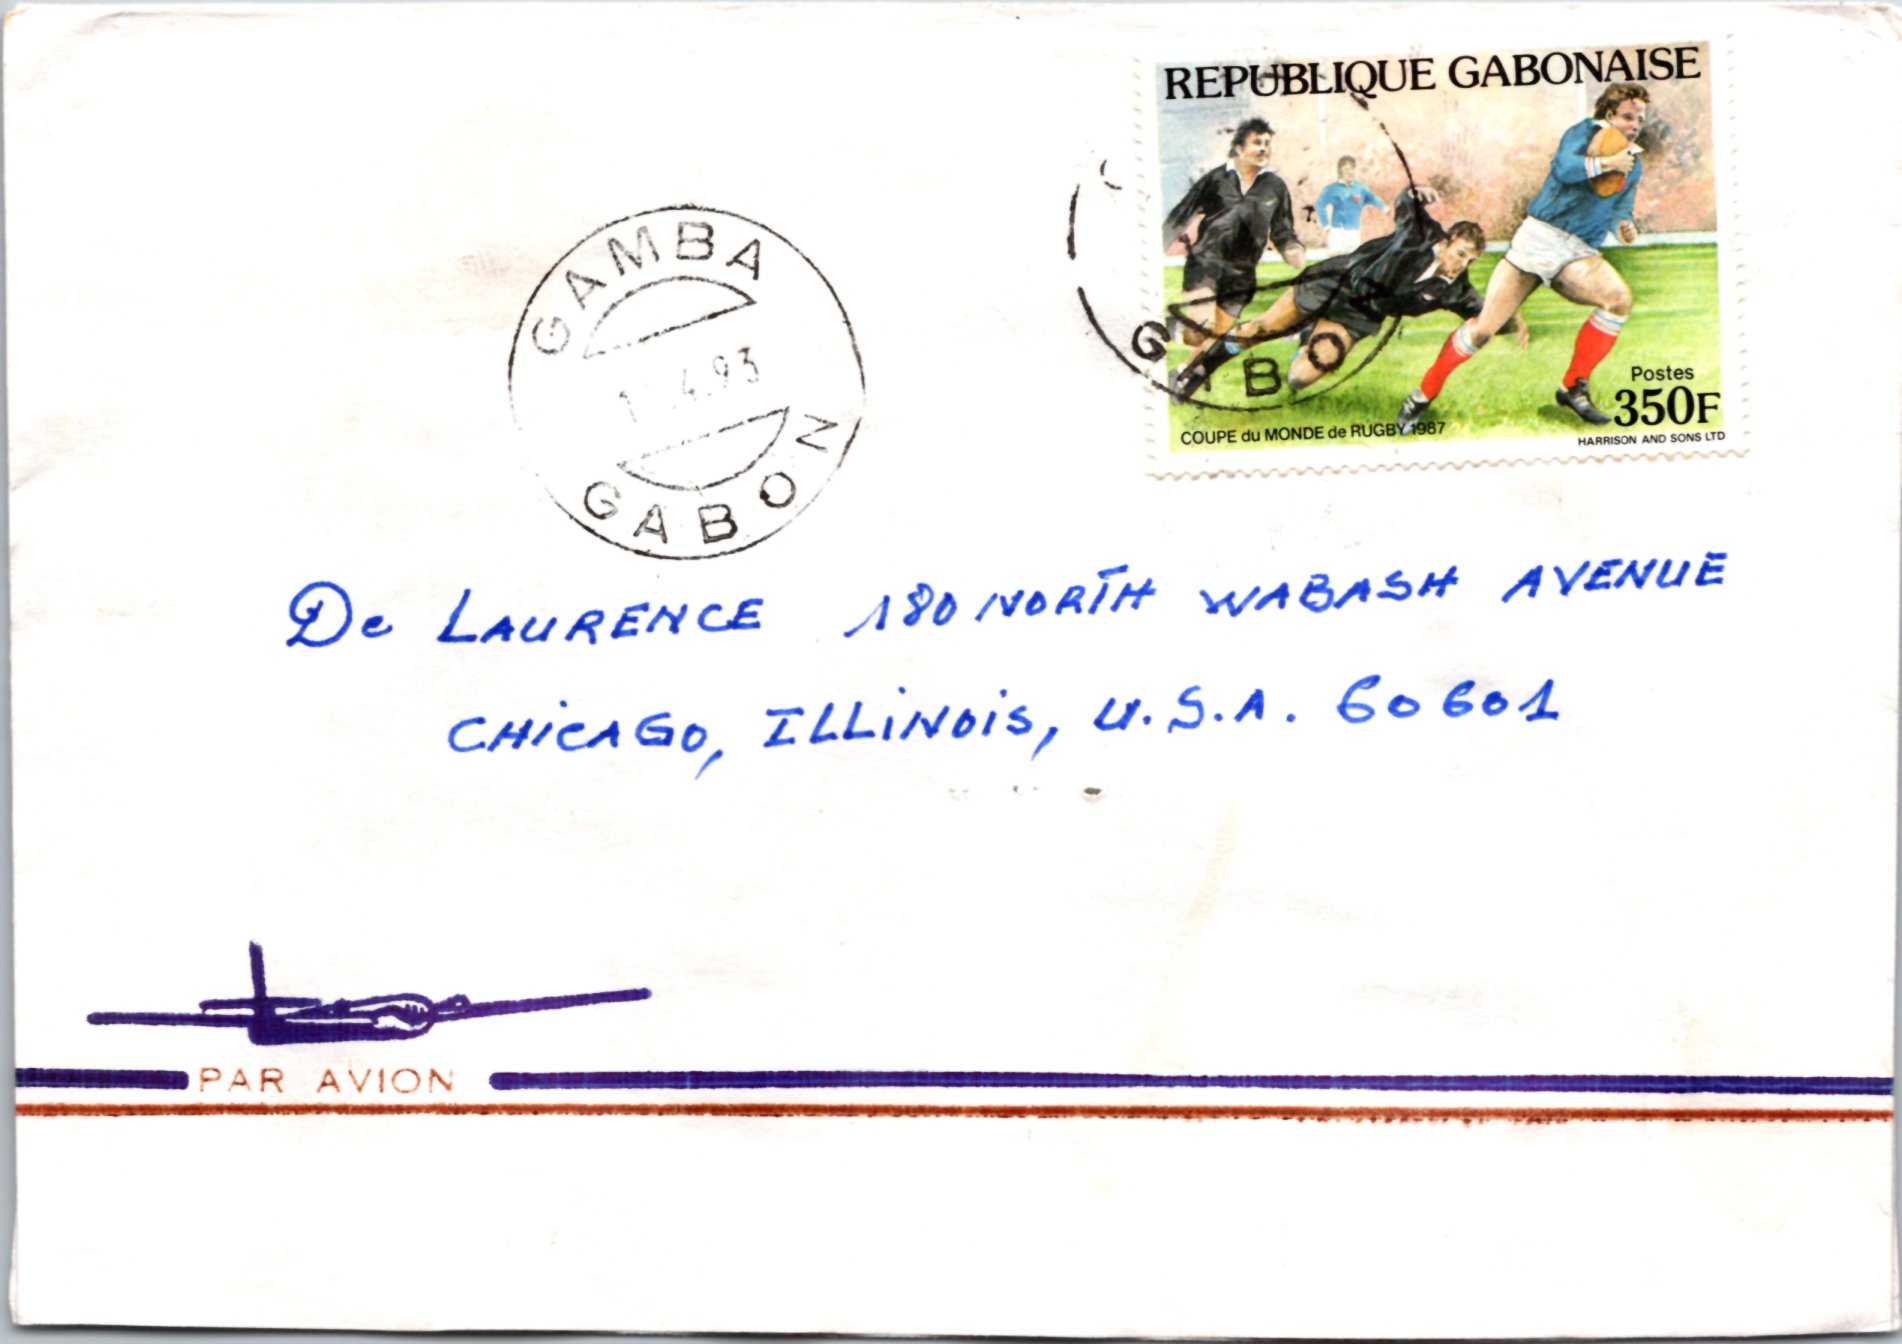 REPUBLIQUE GABONAISE
Postes
350F
COUPE du MONDE de RUGBY 1987
HARRISON AND SONS LTD
GABO
GAMBA
4.93
GABON
De LAURENCE 180 NORTH WABASH AVENUE
CHiCAGO, ILLiNOiS, U.S.A. 60601
PAR AVION